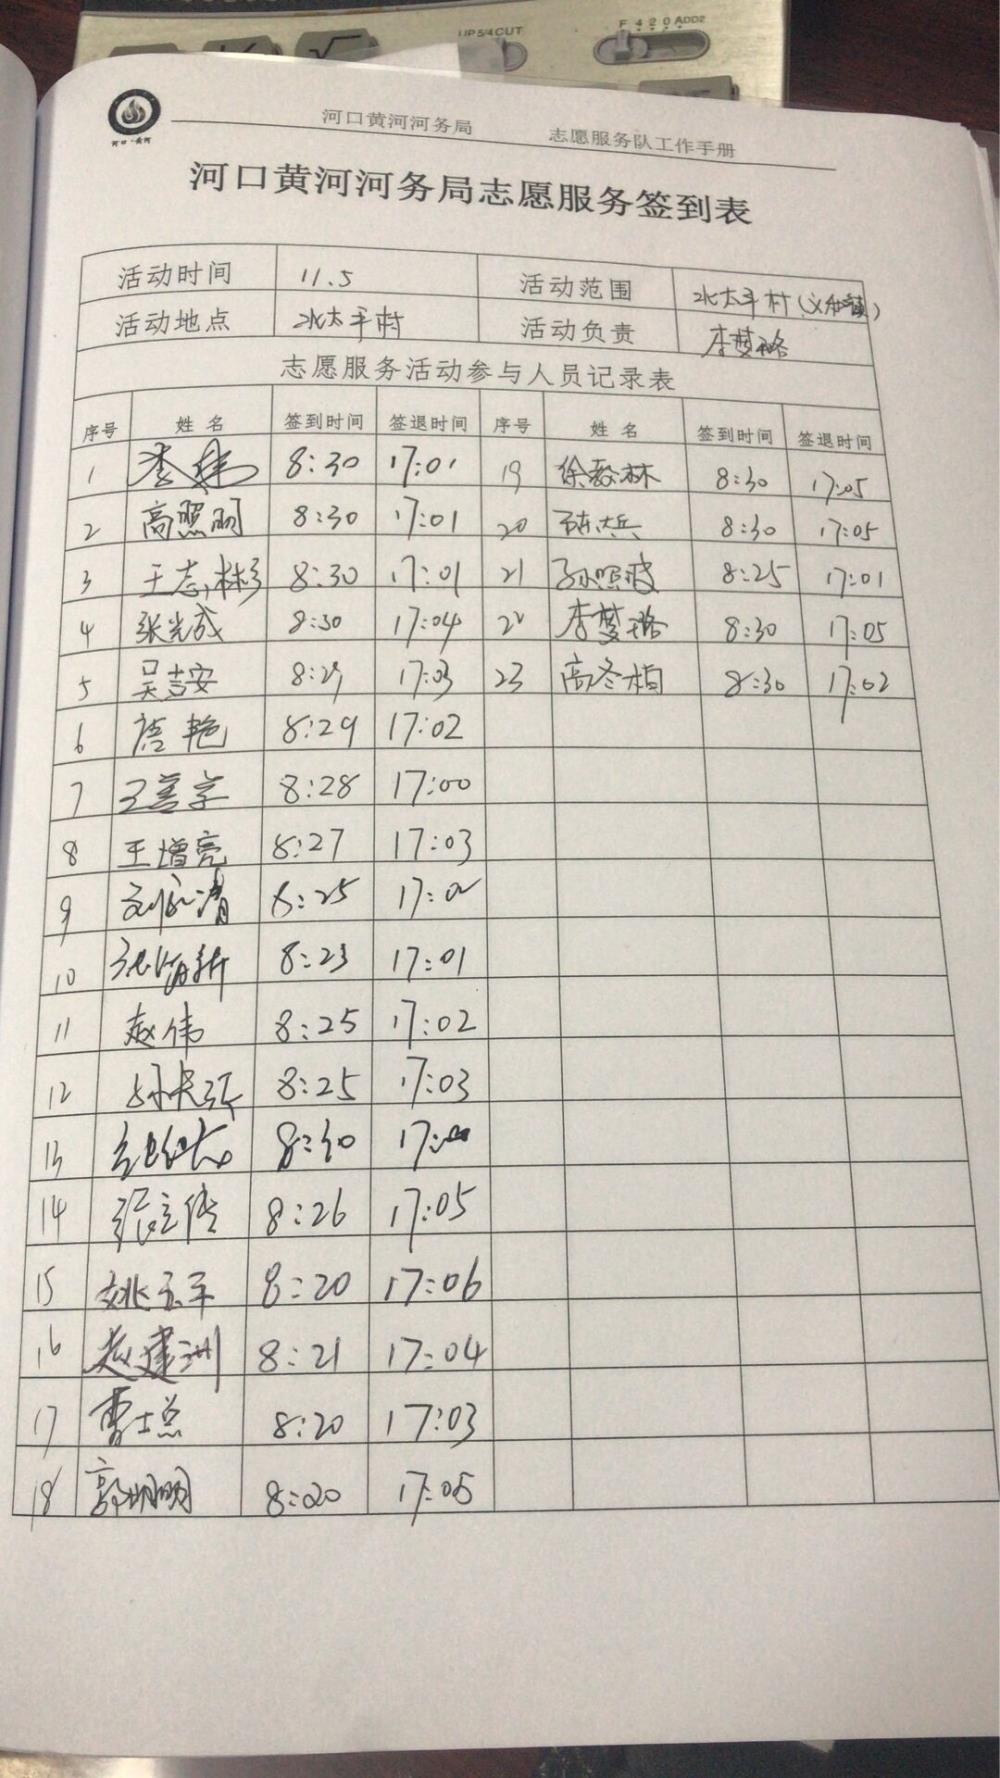 UP 5/4 CUT
F 4 2 0 ADD2
河口·黄河
河口黄河河务局 志愿服务队工作手册
河口黄河河务局志愿服务签到表
活动时间 11.5 活动范围 水太平村(义和镇)
活动地点 水太平村 活动负责 李梦璐
志愿服务活动参与人员记录表
序号 姓名 签到时间 签退时间 序号 姓名 签到时间 签退时间
1 李 8:30 17:01 19 徐 林 8:30 17:05
2 高照明 8:30 17:01 20 陈大兵 8:30 17:05
3 王志彬 8:30 17:01 21 孙照波 8:25 17:01
4 张光成 8:30 17:04 22 李梦璐 8:30 17:05
5 吴吉安 8:29 17:03 23 高冬梅 8:30 17:02
6 唐艳 8:29 17:02
7 王善学 8:28 17:00
8 王增亮 8:27 17:03
9 清 8:25 17:02
10 张海新 8:23 17:01
11 赵伟 8:25 17:02
12 8:25 17:03
13 8:30 17:00
14 张立传 8:26 17:05
15 姚玉平 8:20 17:06
16 赵建洲 8:21 17:04
17 曹士总 8:20 17:03
18 郭明明 8:20 17:05